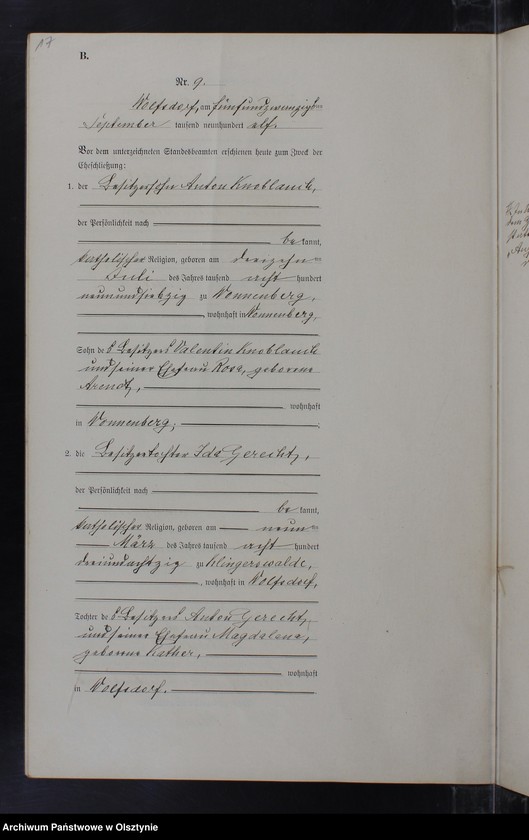 17
B.
Nr. 9.
Wolfsdorf, am fünfundzwanzigsten
September tausend neunhundert elf.
Vor dem unterzeichneten Standesbeamten erschienen heute zum Zweck der
Eheschließung:
1. der Besitzersohn Anton Knoblauch,
der Persönlichkeit nach
be kannt,
katholischer Religion, geboren am dreizehnten
Juli des Jahres tausend acht hundert
neunundsiebzig zu Nonnenberg,
, wohnhaft in Nonnenberg,
Sohn des Besitzers Valentin Knoblauch
und seiner Ehefrau Rosa, geborene
Arendt,
wohnhaft
in Nonnenberg;
2. die Besitzertochter Ida Gerecht,
der Persönlichkeit nach
be kannt,
katholischer Religion, geboren am neunten
März des Jahres tausend acht hundert
dreiundachtzig zu Klingerswalde,
, wohnhaft in Wolfsdorf,
Tochter des Besitzers Anton Gerecht,
und seiner Ehefrau Magdalena,
geborene Kather,
wohnhaft
in Wolfsdorf.
Archiwum Państwowe w Olsztynie